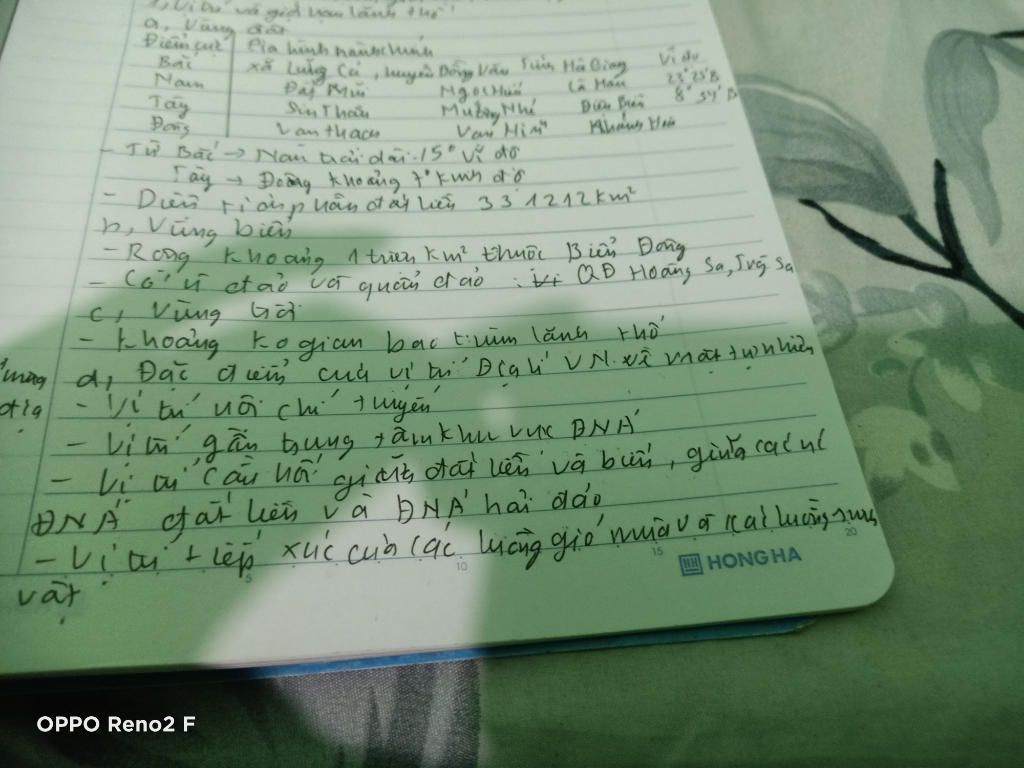 1, Vị trí và giới hạn lãnh thổ
a, Vùng đất
Điểm cực Địa hình hành chính
Bắc xã Lũng Cú, huyện Đồng Văn Tỉnh Hà Giang Vĩ độ 23°23'B
Nam Đất Mũi Ngọc Hiển Cà Mau 8°34'B
Tây Sín Thầu Mường Nhé Điện Biên
Đông Vạn Thạnh Vạn Ninh Khánh Hoà
- Từ Bắc → Nam trải dài 15° vĩ độ
Tây → Đông khoảng 7° kinh độ
- Diện tích phần đất liền 331212km²
b, Vùng biển
- Rộng khoảng 1 triệu km² thuộc Biển Đông
- Có đảo và quần đảo : QĐ Hoàng Sa, Trg Sa
c, Vùng trời
- Khoảng ko gian bao trùm lãnh thổ
d, Đặc điểm của vị trí Địa lí VN về mặt tự nhiên
- Vị trí nội chí tuyến
- Vị trí gần trung tâm khu vực ĐNÁ
- Vị trí cầu nối giữa đất liền và biển, giữa các nc
ĐNÁ đất liền và ĐNÁ hải đảo
- Vị trí tiếp xúc của các luồng gió mùa và các luồng sinh
vật
HONG HA
5 10 15 20
OPPO Reno2 F